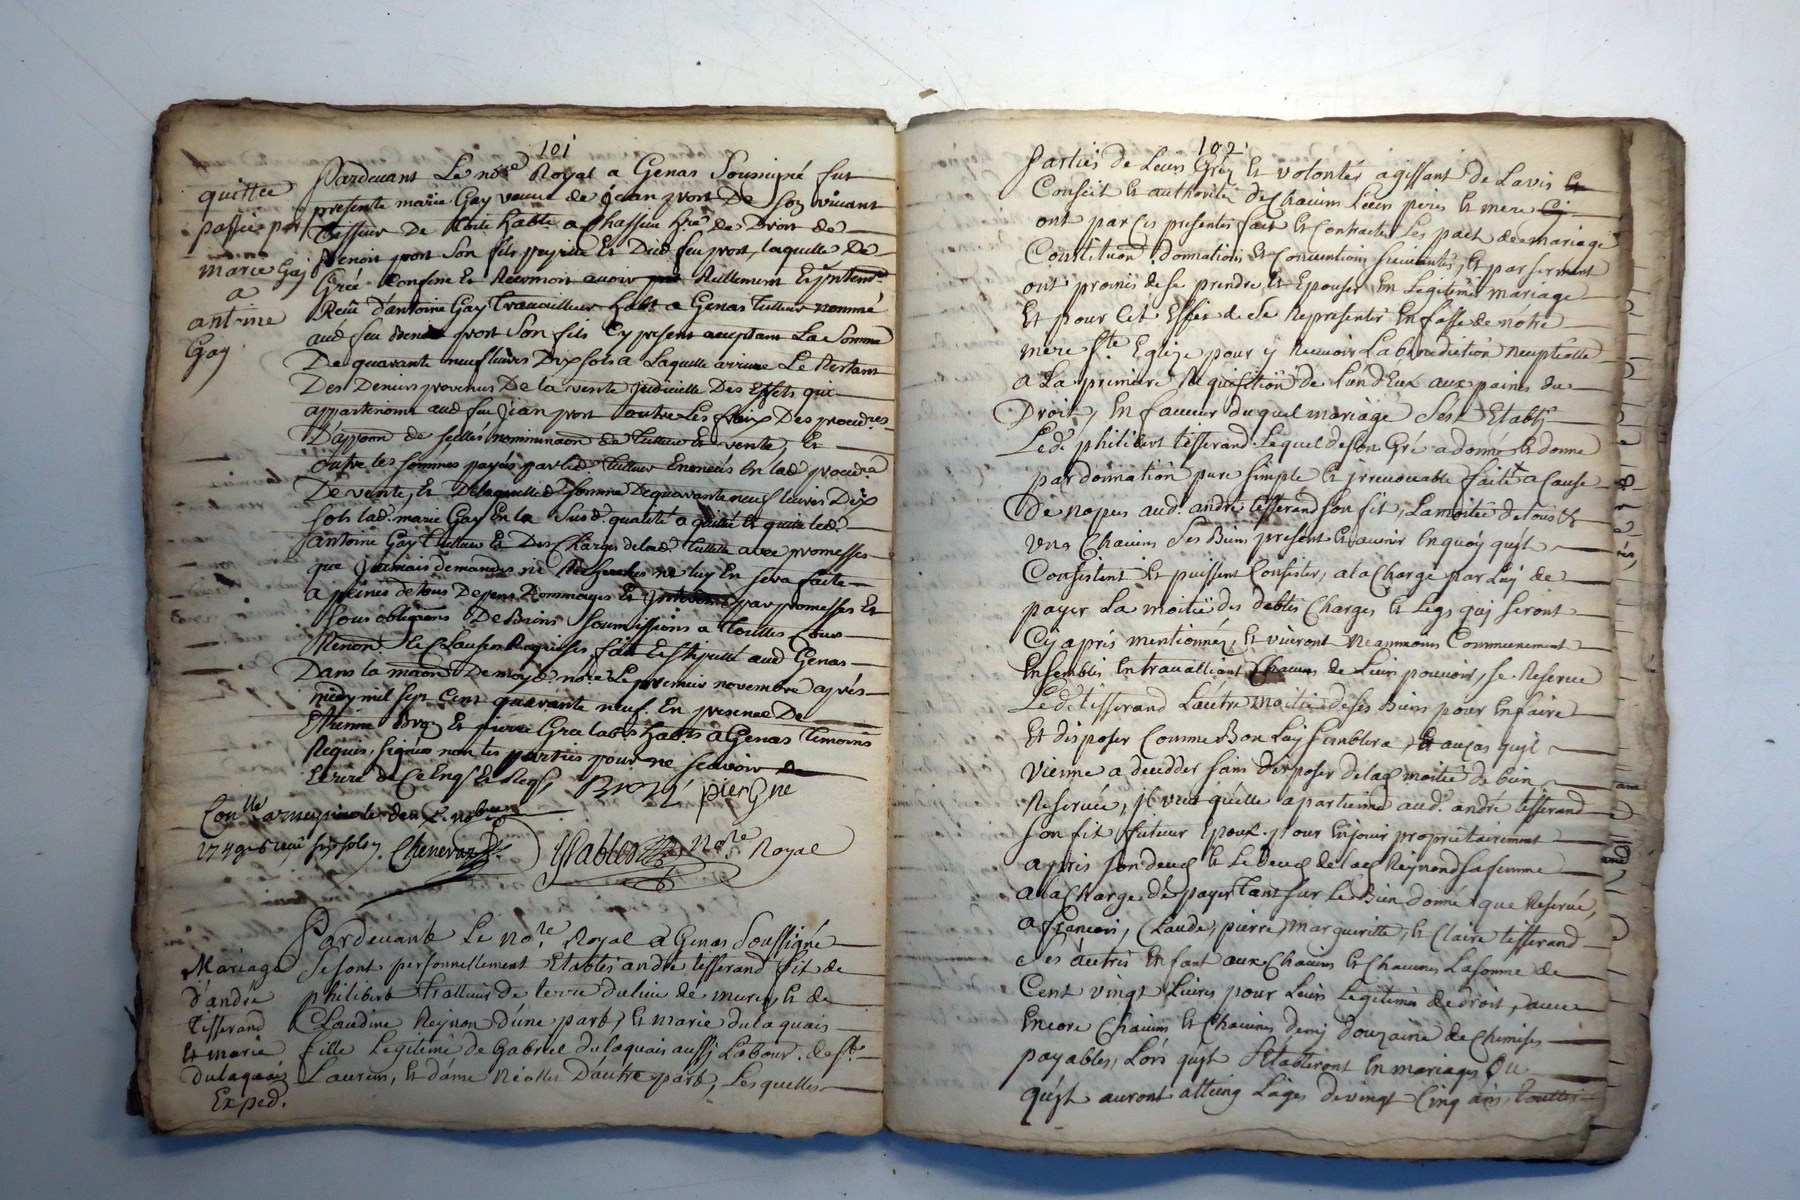 101
quittée
passée par
marie Gay
a
antoine
Gay
Pardevant Le no.re Royal a Genas Soussigné fut
presente marie Gay veuve de jean prost De son vivant
De
prost Son fils
Gré Confesse Et Reconnoit avoir Réellement
Reçu d'antoine Gay travailleur habt. a Genas tutteur nommé
aud feu prost Son fils Cy present acceptant La Somme
De quarante neuf livres Dix sols a Laquelle arrive Le Restant
Des Deniers provenus De la vente judicielle Des Effets qui
appartenoint aud feu jean prost outre Les fraix Des
D'apposon de scellés nominnaon de tutteur Et vente, Et
Outre les sommes payées par led. tutteur Enoncés En lad
De vente, Et De laquelle d. somme De quarante neuf livres Dix
sols lad. marie Gay En la Susd. qualité a quitté Et quitte led.
antoine Gay tutteur Et Des Charges de lad. tuttelle avec promesses
que jamais demandes ne Recherches ne luy En sera faite
a peines de tous Depens Dommages Et par promesses Et
Sous obligaons De Biens Soumissions a touttes Cours
Renonons Et Clauses Requises, fait Et stipullé aud Genas
Dans la maon De moyd. nore Le premier novembre après
midy mil sept Cent quarante neuf. En presence De
Etienne Broz Et pierre habts a Genas temoins
Requis, signés non les parties pour ne scavoir
Ecrire de Ce Enqs Et Reqs, Brozz pier Gre
Conlle a
1749 Reçu six sols. Chenevaz No.re Royal
Mariage
d'andré
tisserand
Et marie
dulaquais
Exped.
Pardevant Le No.re Royal a Genas Soussigné
Se sont personnellement Etablis andré tisserand fils de
philibert de terre du lieu de mure, Et de
Claudine Reynon d'une part, Et marie dulaquais
fille Legitime de Gabriel dulaquais aussy Labour. de St.
Laurens, Et dame D'autre part, Lesquelles
102
Parties de Leurs Grez Et volontés agissant de Lavis Et
Conseil Et authorité de Chacuns Leurs peres Et mere
ont par Ces presentes fait Et Contracté Les pact de mariage
Constituon donnations Et Conventions suivantes, Et par serment
ont promis de se prendre Et Epouser En Legitime mariage
Et pour Cet Effet de se Representer En fasse de nôtre
mere Ste. Eglize pour y Recevoir La benediction neuptialle
a La premiere Requisition de L'un d'Eux aux paines du
Droit, En faveur duquel mariage S'est Etably
Led. philibert tisserand Lequel de son Gré a donné Et donne
par donnation pure simple Et irrevocable faitte a Cause
De nopces aud. andré tisserand son fils, La moitié de tous Et
uns Chacuns Ses Biens present Et avenir En quoy qu'jl
Consistent Et puissent Consister, a la Charge par Luy de
payer La moitié des debtes Charges Et Legs quj seront
Cy après mentionnéz, Et vivront Neammoins Communement
Ensembles En travaillant Chacuns de Leur pouvoir, se Reserve
Led. tisserand L'autre moitié de ses Biens pour En faire
Et disposer Comme Bon Luy Semblera, Et au cas qu'jl
Vienne a decedder sans disposer de lad. moitié de bien
Reservée, jl veut qu'elle apartienne aud. andré tisserand
son fils futeur Epoux, pour En jouir proprietairement
après son decéd Et Le decéd de lad. Reynond sa femme
a la Charge de payer tant sur Le Bien donné que Reservé,
a françois, Claude, pierre, Marguerite, Et Claire tisserand
ses autres Enfant aux Chacuns Et Chacunes La somme de
Cent vingt Livres pour Leurs Legitimes de droit, avec
Encore Chacuns Et Chacunes demj douzaine de Chemises
payables, Lors qu'jl S'Etabliront En mariages Ou
qu'jl auront atteing L'ages de vingt Cinq ans, touttes